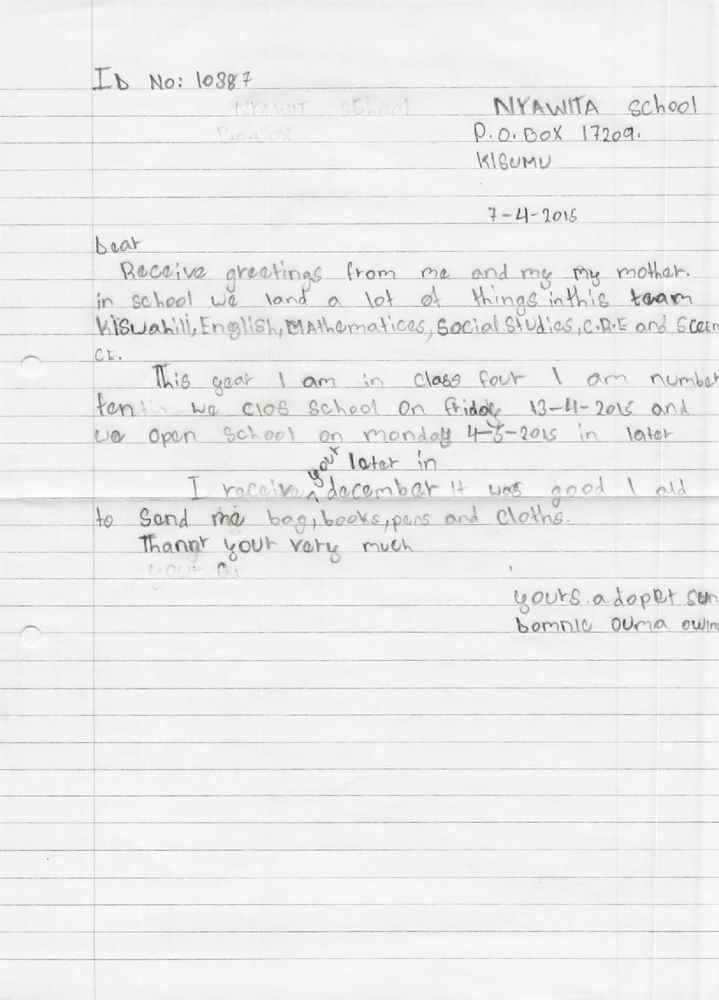 ID No: 10387
NYAWITA School
P.O. BOX 17209.
KISUMU
7-4-2015
Dear
Receive greetings from me and my my mother.
in school we land a lot of things in this team
Kiswahili, English, MAthematices, Social Studies, C.R.E and Scein
CE.
This year I am in class four I am number
ten we clos school on friday 13-4-2015 and
we open school on monday 4-5-2015 in later
your later in
I receive december it was good I ald
to Send me bag, books, pens and cloths.
Thannt yout very much
yours adopet sun
Domnic ouma owin